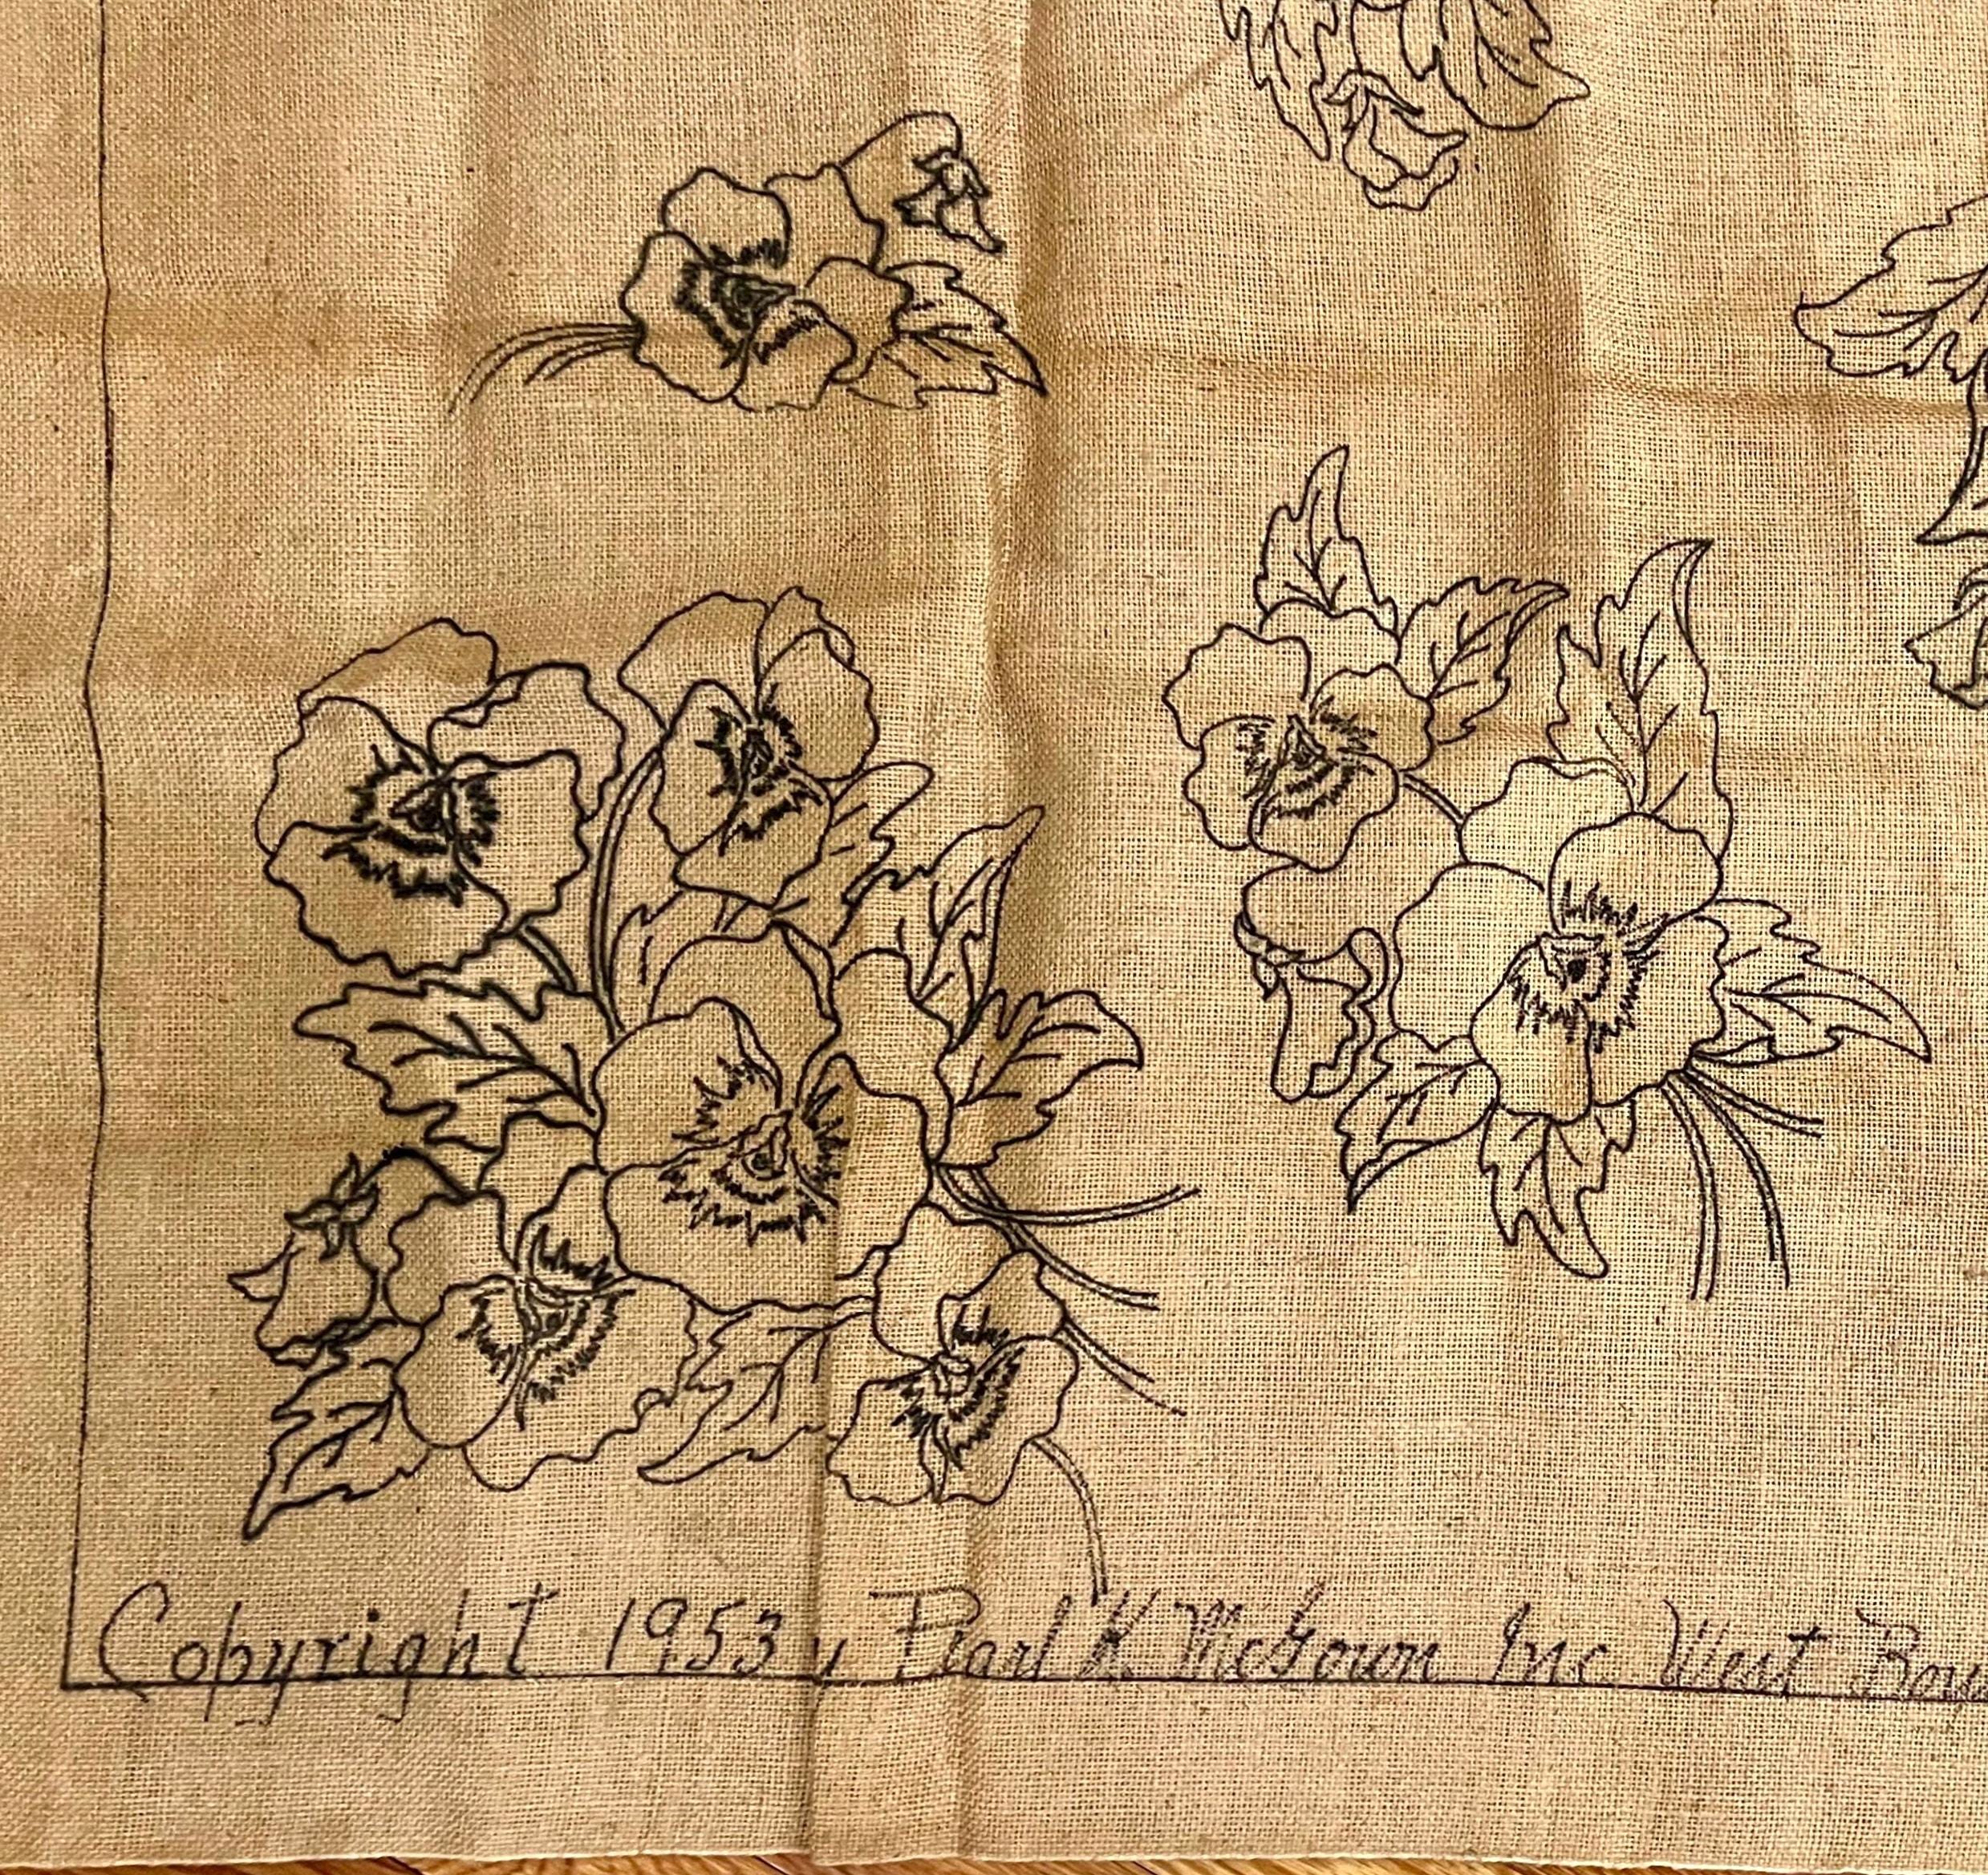 Copyright 1953 y Pearl K. McGown Inc West Boy